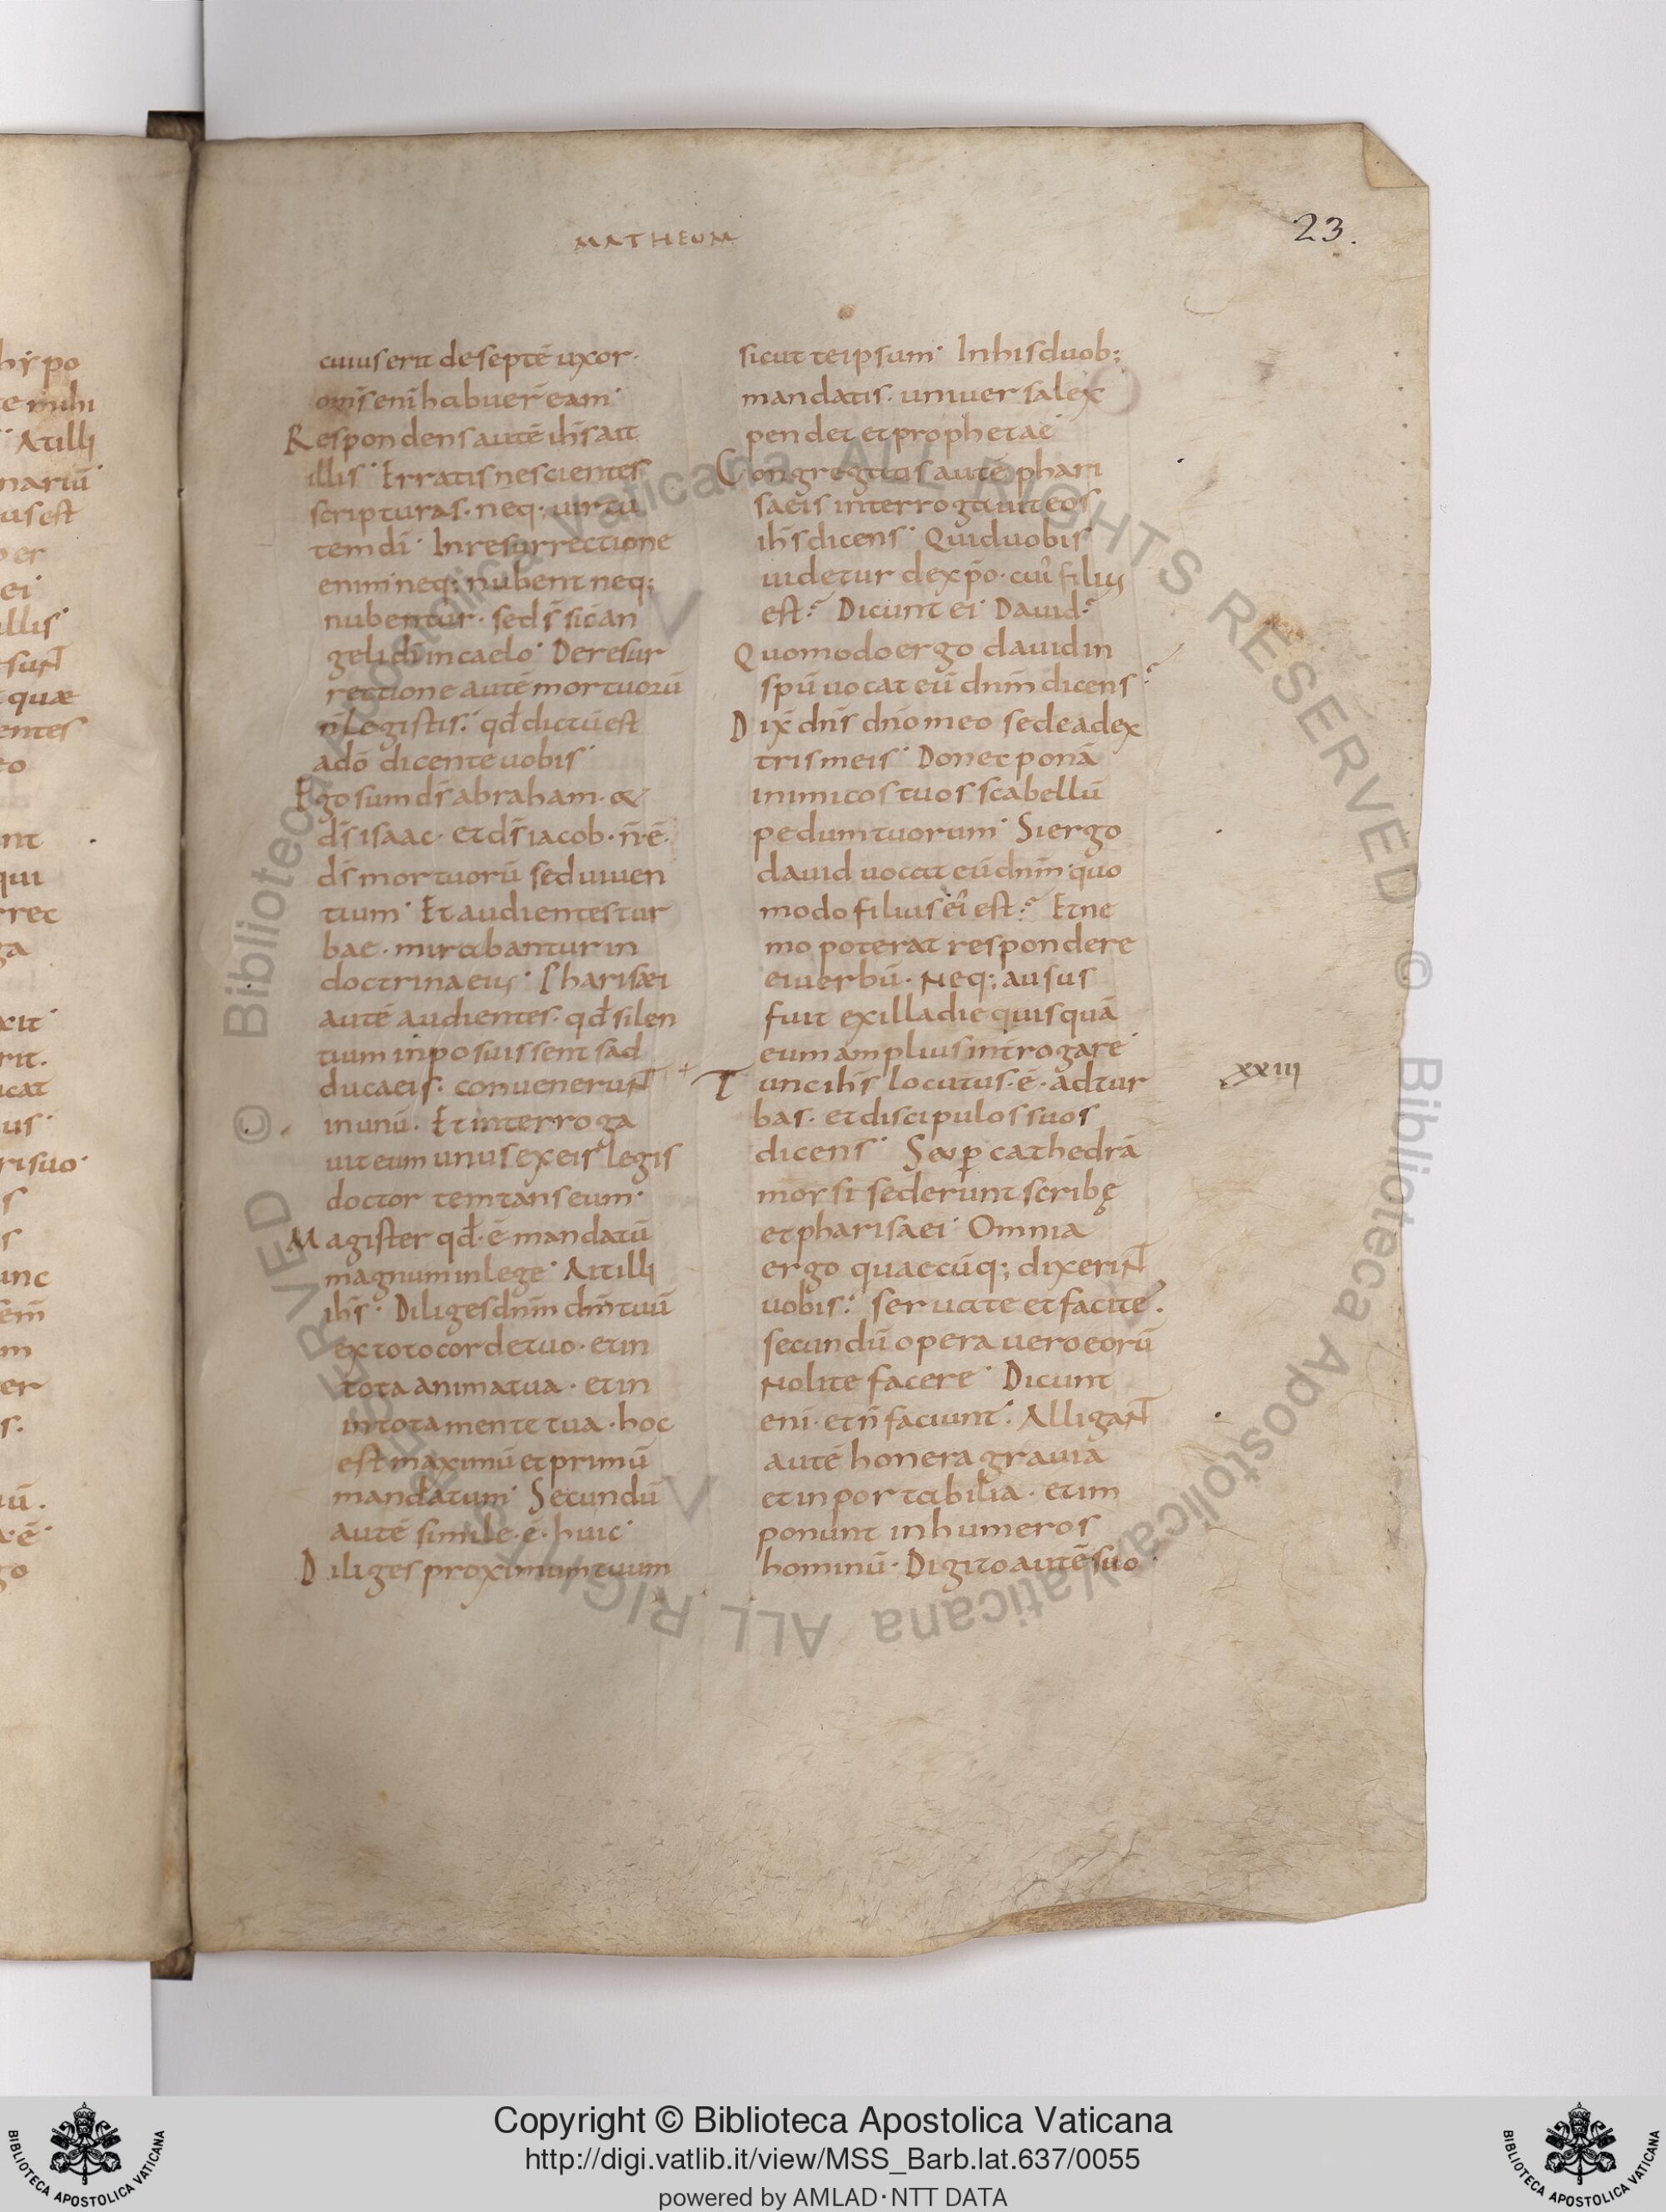 MATHEUM
23.
cuius erit de septē uxor·
om̄s eni habuer̄ eam·
Respondens autē ih̄s ait
illis· Erratis nescientes
scripturas· neq; uirtu
tem dī· In resurrectione
enim neq; nubent neq;
nubentur· sed s̄ sic an
geli dī in caelo· De resur
rectione autē mortuorū
n̄ legistis· qđ dictū est
a dō dicente uobis·
Ego sum ds̄ abraham· &
ds̄ isaac· et ds̄ iacob· n̄·ē·
ds̄ mortuorū sed uiuen
tium· Et audientes tur
bae· mirabantur in
doctrina eius· Pharisaei
autē audientes· qđ silen
tium inposuissent sad
ducaeis· conuenerunt
in unū· Et interroga
uit eum unus ex eis legis
doctor temtans eum·
Magister qđ·ē mandatū
magnum in lege· Ait illi
ih̄s· Diliges dn̄m dm̄ tuū
ex toto corde tuo· et in
tota anima tua· et in
in tota mente tua· hoc
est maximū et primū
mandatum· Secundū
autē simile·ē·huic·
Diliges proximum tuum
sicut te ipsum· In his duob;
mandatis· uniuersa lex
pendet et prophetae
Congregatis autē phari
saeis interrogauit eos
ih̄s dicens· Quid uobis
uidetur de xp̄o· cui filius
est? Dicunt ei· Dauid?
Quomodo ergo dauid in
spū uocat eū dn̄m dicens
Dix̄ dn̄s dn̄o meo sede a dex
tris meis· Donec ponā
inimicos tuos scabellū
pedum tuorum· Si ergo
dauid uocat eū dn̄m· quo
modo filius ei est? Et ne
mo poterat respondere
ei uerbū· Neq; ausus
fuit ex illa die quisquā
eum amplius introgare·
Tunc ih̄s locutus·ē·ad tur
xxiii
bas· et discipulos suos
dicens· Sup cathedrā
mosi sederunt scribę
et pharisaei· Omnia
ergo quaecūq; dixerint
uobis· seruate et facite·
secundū opera uero eorū
Nolite facere· Dicunt
eni· et n̄ faciunt· Alligant
autē honera grauia
et inportabilia· et im
ponunt in humeros
hominū· Digito autē suo
Copyright © Biblioteca Apostolica Vaticana
http://digi.vatlib.it/view/MSS_Barb.lat.637/0055
powered by AMLAD·NTT DATA